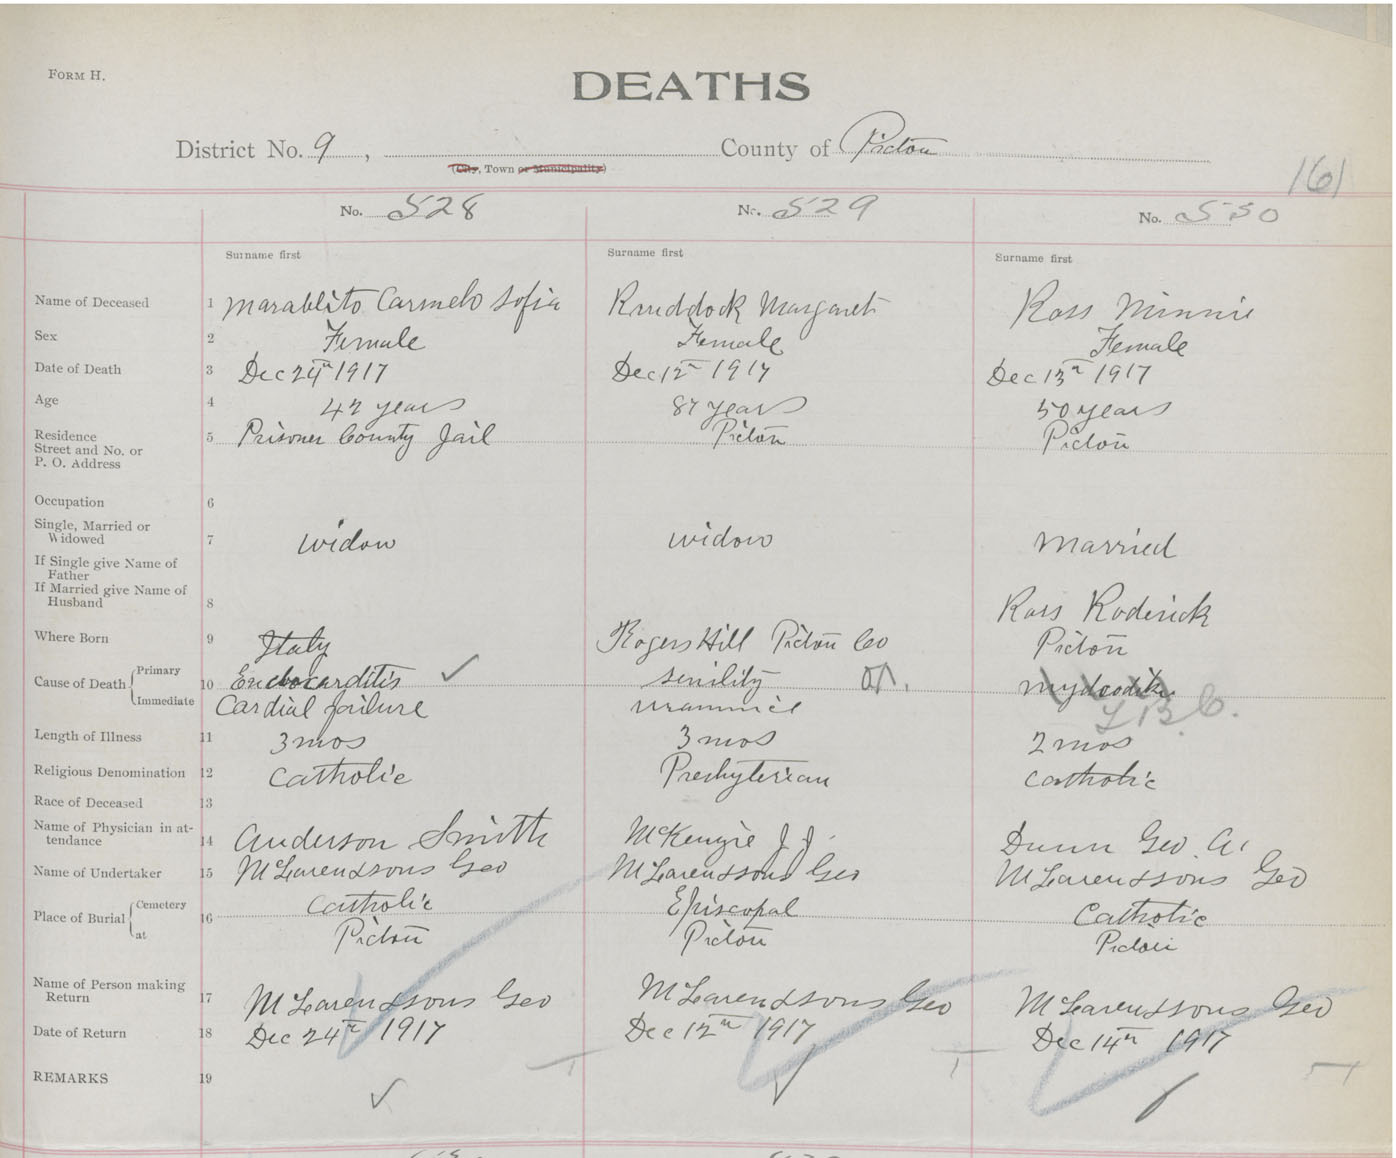 FORM H.
DEATHS
District No. 9, County of Pictou
(City, Town or Municipality)
161
No. 528 No. 529 No. 530
Surname first Surname first Surname first
Name of Deceased 1 Marablito Carmelo Sofia Ruddock Margaret Ross Minnie
Sex 2 Female Female Female
Date of Death 3 Dec 24th 1917 Dec 12th 1917 Dec 13th 1917
Age 4 42 years 87 years 50 years
Residence Street and No. or P. O. Address 5 Prisoner County Jail Pictou Pictou
Occupation 6
Single, Married or Widowed 7 widow widow married
If Single give Name of Father
If Married give Name of Husband 8 Ross Roderick
Where Born 9 Italy Rogers Hill Pictou Co Pictou
Cause of Death Primary 10 Endocarditis senility
Immediate Cardial failure
Length of Illness 11 3 mos 3 mos 2 mos
Religious Denomination 12 Catholic Presbyterian Catholic
Race of Deceased 13
Name of Physician in attendance 14 Anderson Smith McKenzie J J. Dunn Geo. A.
Name of Undertaker 15 McLaren & sons Geo McLaren & sons Geo McLaren & sons Geo
Place of Burial Cemetery 16 Catholic Episcopal Catholic
at Pictou Pictou Pictou
Name of Person making Return 17 McLaren & sons Geo McLaren & sons Geo McLaren & sons Geo
Date of Return 18 Dec 24th 1917 Dec 12th 1917 Dec 14th 1917
REMARKS 19